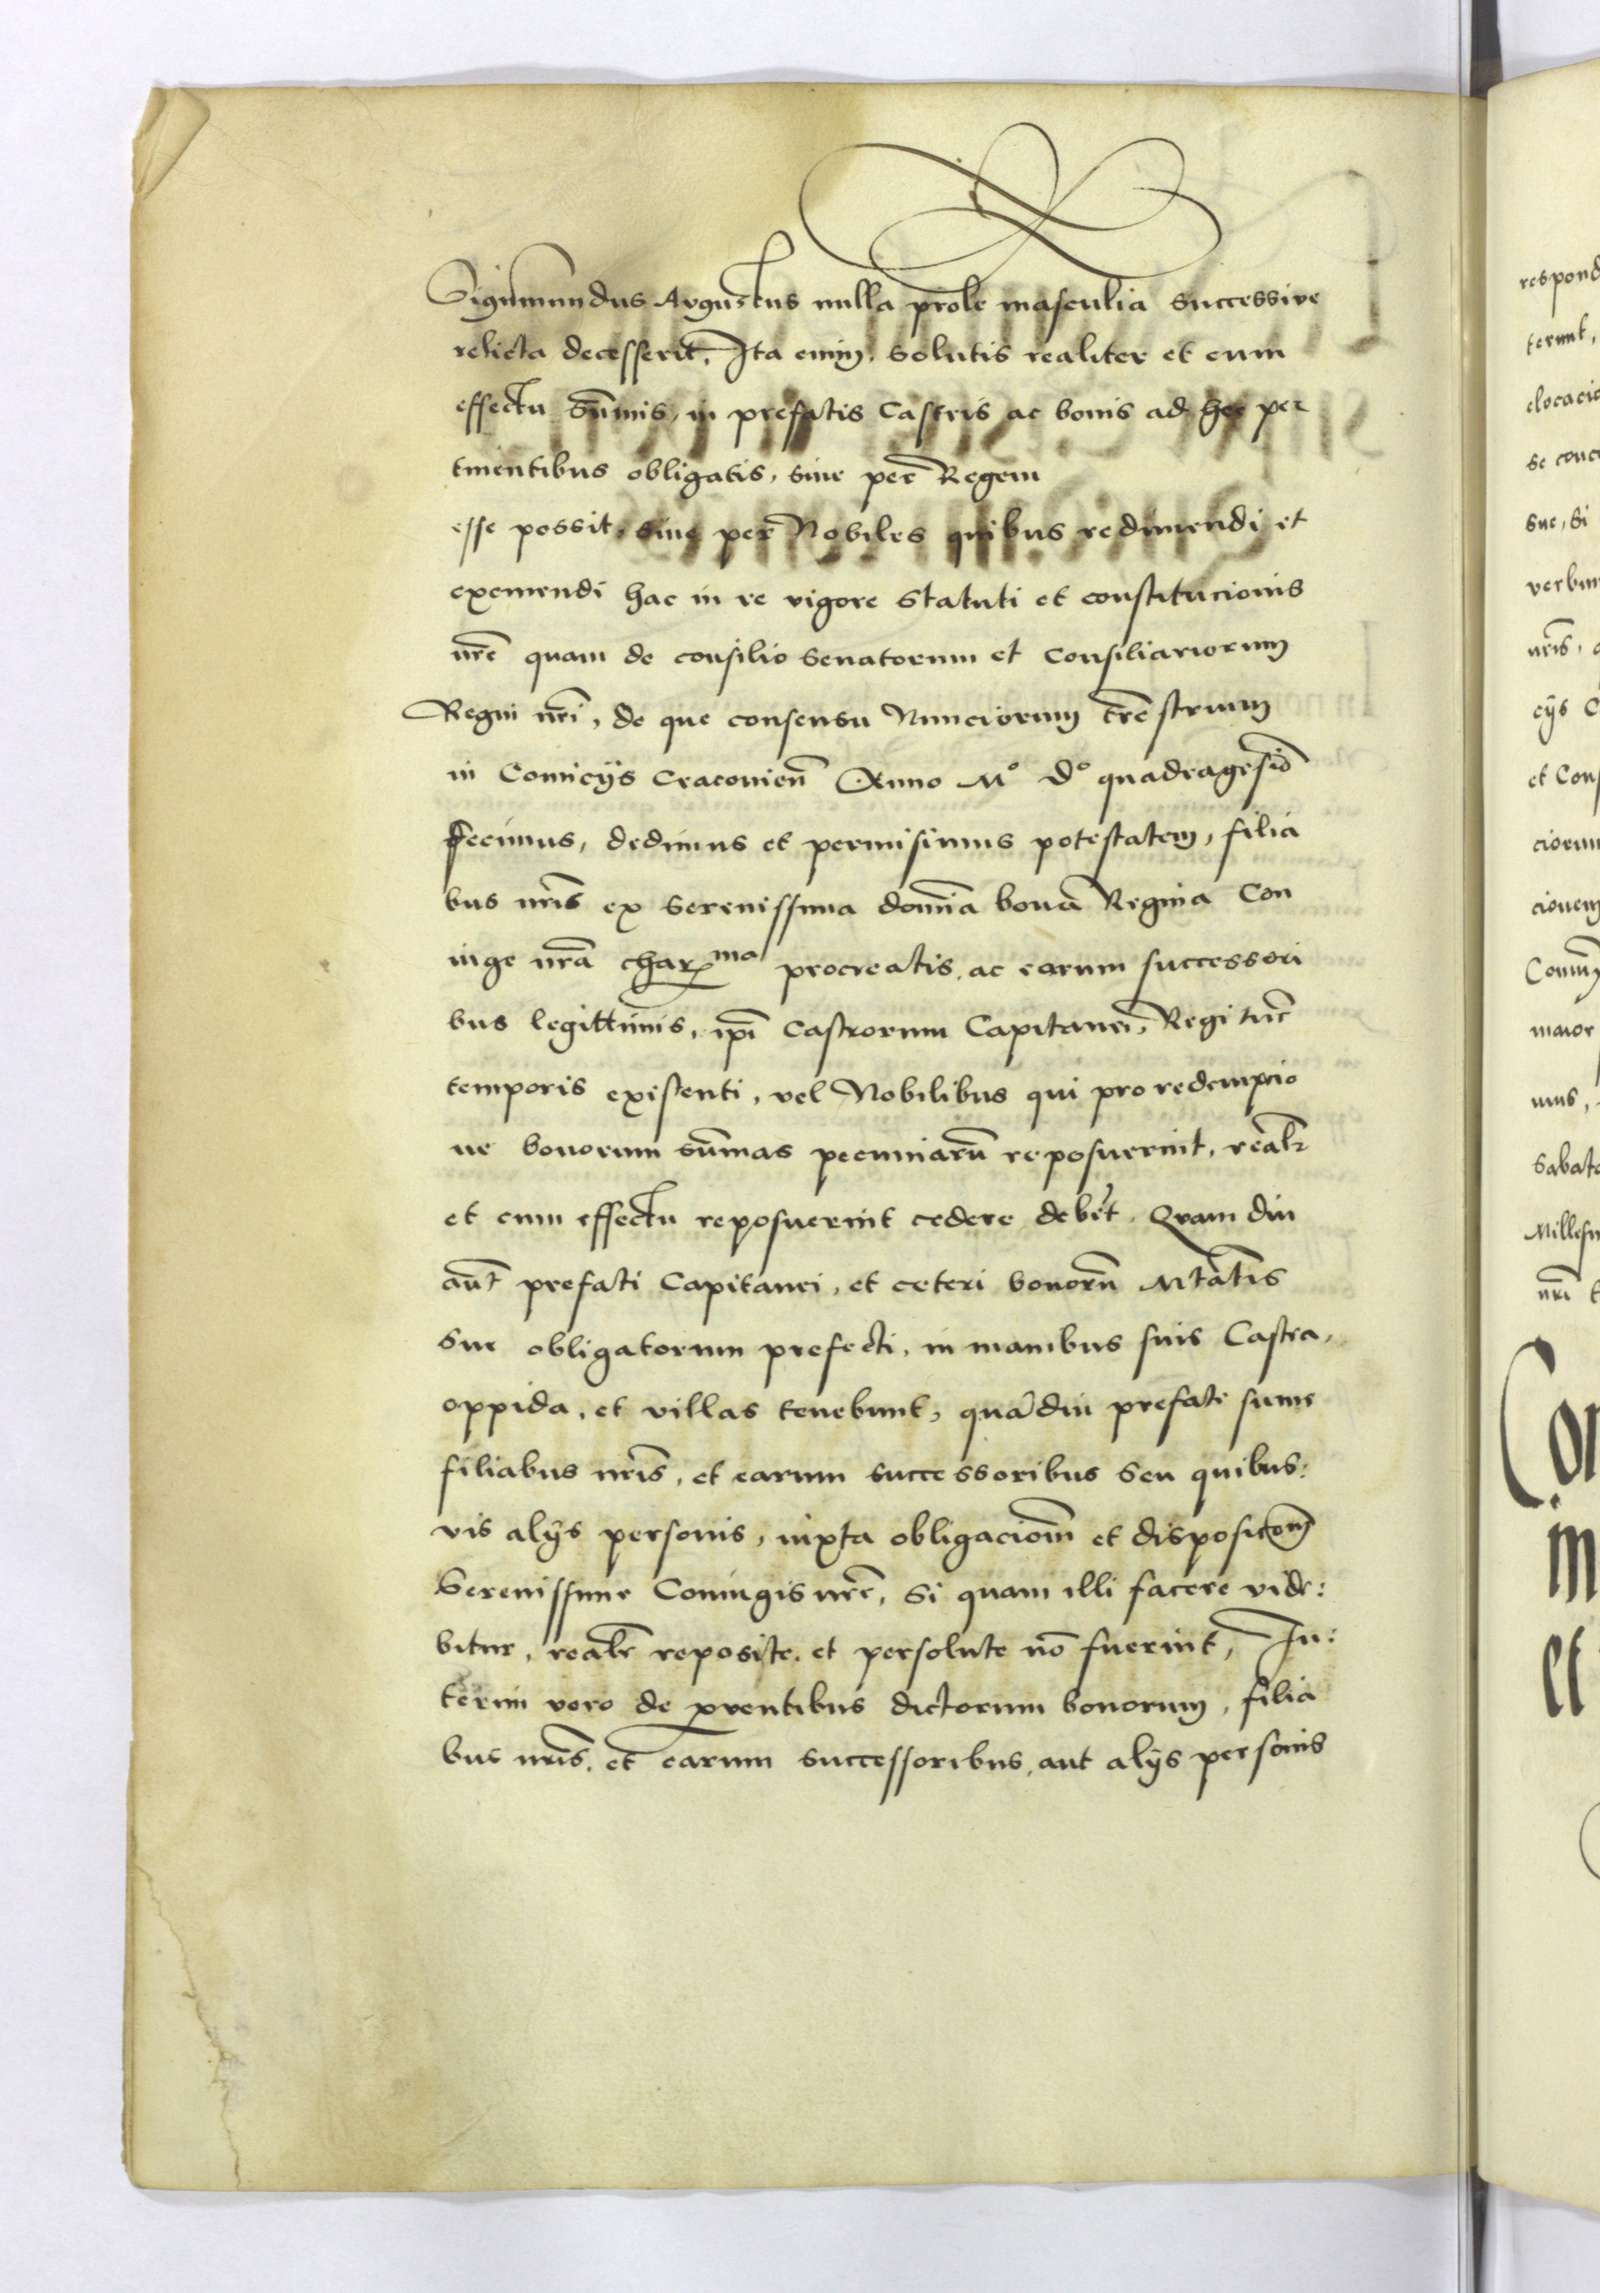 Sigismundus Augustus nulla prole masculia successive
relicta decesserit, Ita enim, solutis realiter et cum
effectu sūmis, in prefatis Castris ac bonis ad hec per
tinentibus obligatis, sive per Regem
esse possit, sive per Nobiles quibus redimendi et
eximendi hac in re vigore Statuti et constitucionis
nrē quam de consilio Senatorum et Consiliariorum
Regni nrī, de que consensu Nunciorum trēstrium
in Comicijs Cracovień Anno Mº Dº quadragesiō
fecimus, dedimus et permisimus potestatem, filia
bus nrīs ex Serenissima domīa bona Regina Con
iuge nrā charma procreatis, ac earum successori
bus legittimis, ipī Castrorum Capitanei, Regi tūc
temporis existenti, vel Nobilibus qui pro redempcio
ne bonorum sūmas pecuniarū reposuerint, realr
et cum effectu reposuerint cedere debēt. Quam diu
aūt prefati Capitanei, et ceteri bonorū Mtātis
sue obligatorum prefecti, in manibus suis Castra,
oppida, et villas tenebunt, quādiu prefate sume
filiabus nrīs, et earum successoribus seu quibus:
vis alijs personis, iuxta obligaciōm et dispositōm
Serenissime Coniugis nrē, Si quam illi facere vide:
bitur, realr reposite, et persolute nō fuerint, In:
terim vero de proventibus dictorum bonorum, filia
bus nrīs, et earum successoribus, aut alijs personis
respond
terunt,
elocacio
se conc
sue, si
verbum
nrīs,
cijs C
et Cons
ciorum
cionem
maior
Sabato
Millesi
nrī
Con
in
et